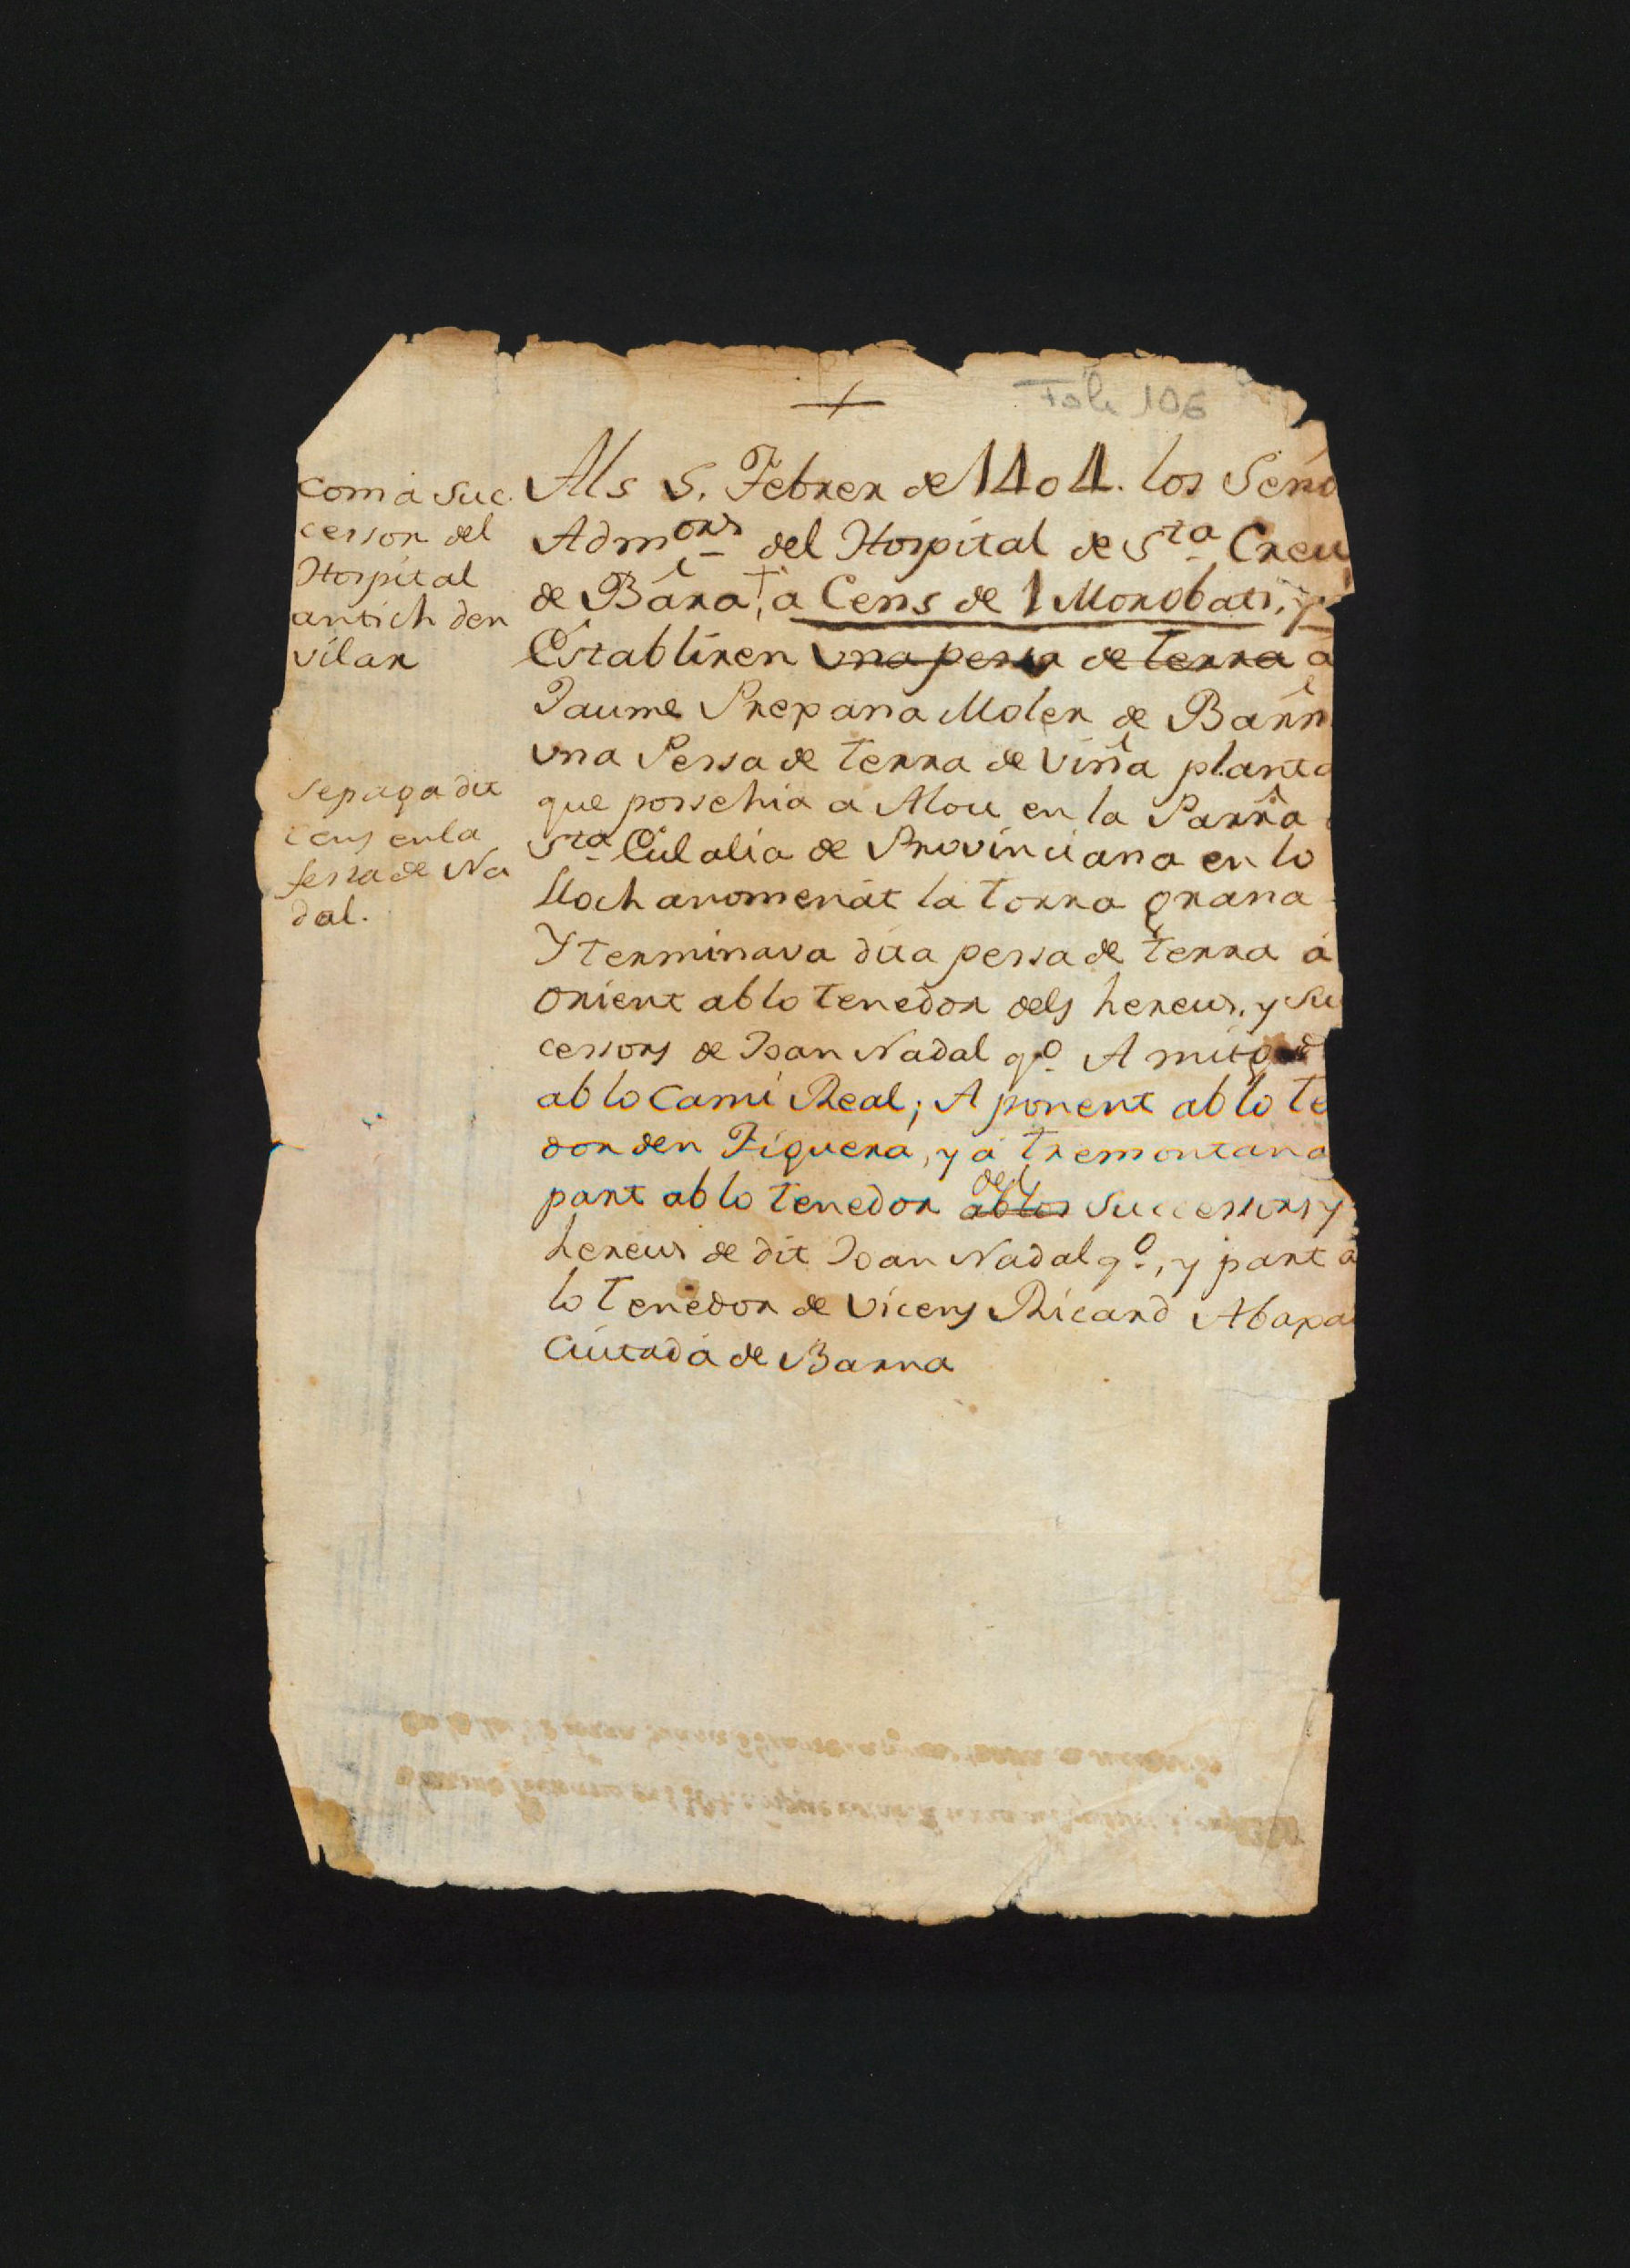 Fol. 106
Als 5. Febrer de 1404. los Seño
Adm.ors del Hospital de Sta Creu
de Bara, † a Cens de 1 Morobati, y
Establiren una pessa de terra a
Jaume Prepana Moler de Barn
una Pessa de terra de Viña planta
que possehia a Alou en la Parra
Sta Eulalia de Provinciana en lo
lloch anomenat la torra grana
Y terminava dita pessa de terra á
orient ab lo tenedor dels hereus, y su
cessors de Joan Nadal qo. A mitg
ab lo Cami Real; A ponent ab lo te
dor den Figuera, y á tremontana
part ab lo tenedor ablos dels successors y
hereus de dit Joan Nadal qo., y part a
lo tenedor de Vicens Ricard
Ciutadá de Barna
com á suc.
cessor del
Hospital
antich den
vilar
se paga dit
cens en la
festa de Na
dal.